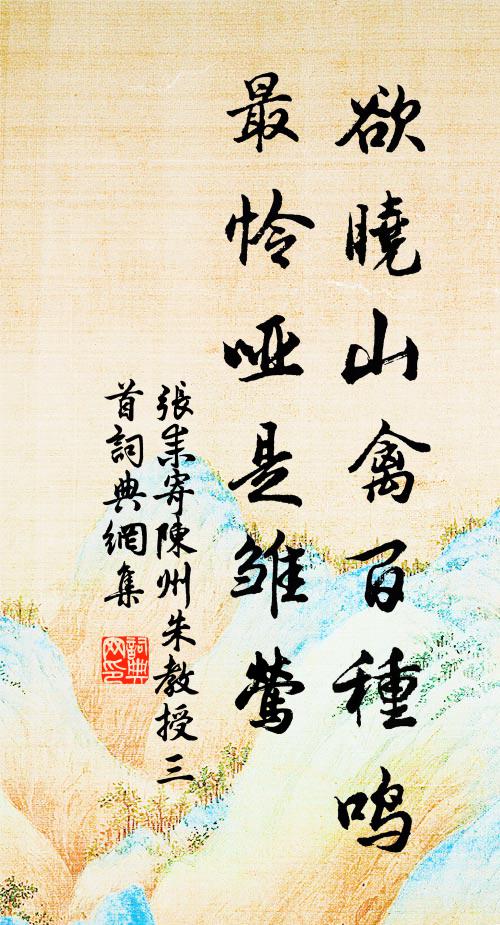 欲曉山禽百種鸣
最怜哑是雏莺
張耒寄陳州朱教授三
首詞典網集
詞典
网印